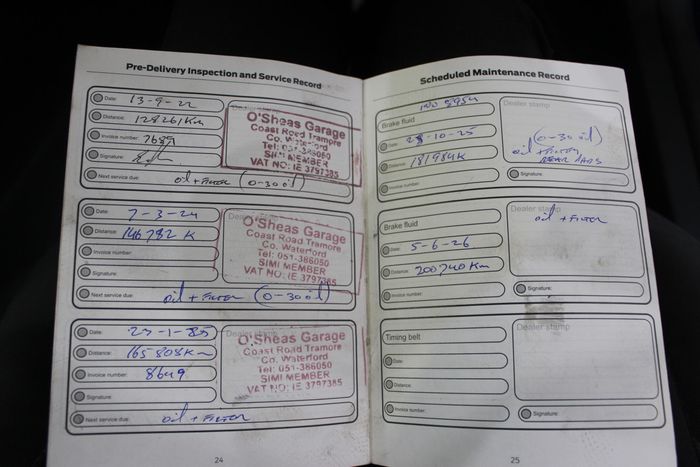 Pre-Delivery Inspection and Service Record
Date: 13-9-22
Distance: 128261 Km
Invoice number: 7689
Signature:
Next service due: oil + Filter (0-30 oil)
Dealer stamp
O'Sheas Garage
Coast Road Tramore
Co. Waterford
Tel: 051-386050
SIMI MEMBER
VAT NO: IE 3797385
Date: 7-3-24
Distance: 146782 K
Invoice number:
Signature:
Next service due: oil + Filter (0-30 oil)
Dealer stamp
O'Sheas Garage
Coast Road Tramore
Co. Waterford
Tel: 051-386050
SIMI MEMBER
VAT NO: IE 3797385
Date: 23-1-25
Distance: 165808 Km
Invoice number: 8649
Signature:
Next service due: oil + Filter
Dealer stamp
O'Sheas Garage
Coast Road Tramore
Co. Waterford
Tel: 051-386050
SIMI MEMBER
VAT NO: IE 3797385
24
Scheduled Maintenance Record
8954
Brake fluid
Date: 28-10-25
Distance: 181984 K
Invoice number:
Dealer stamp
(0-30 oil)
oil + Filter
Signature:
Brake fluid
Date: 5-6-26
Distance: 200740 Km
Invoice number:
Dealer stamp
oil + Filter
Signature:
Timing belt
Date:
Distance:
Invoice number:
Dealer stamp
Signature:
25